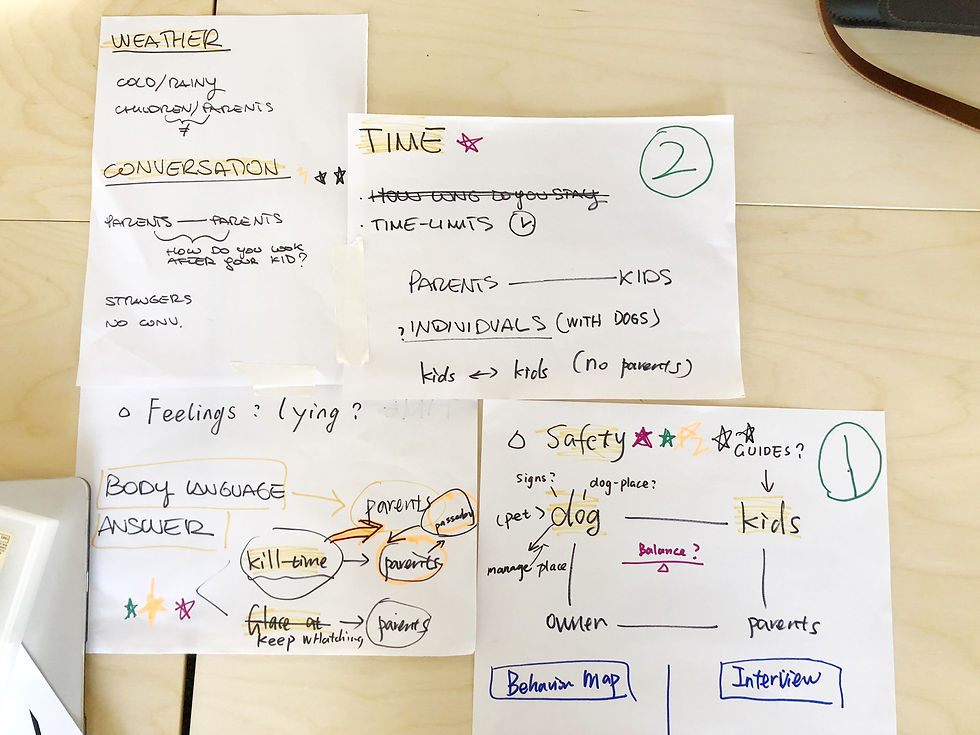 WEATHER
COLD/RAINY
CHILDREN/PARENTS
≠
CONVERSATION
PARENTS — PARENTS
HOW DO YOU LOOK
AFTER YOUR KID?
STRANGERS
NO CONV.
TIME
2
· HOW LONG DO YOU STAY
· TIME-LIMITS
PARENTS — KIDS
? INDIVIDUALS (WITH DOGS)
kids ↔ kids (no parents)
Feelings? lying?
BODY LANGUAGE → parents
ANSWER
passerby
kill-time → parents
Glare at → parents
keep whatching
Safety
1
GUIDES?
signs?
dog-place?
(pet) dog — kids
Balance?
manage place
owner — parents
Behavior Map
Interview